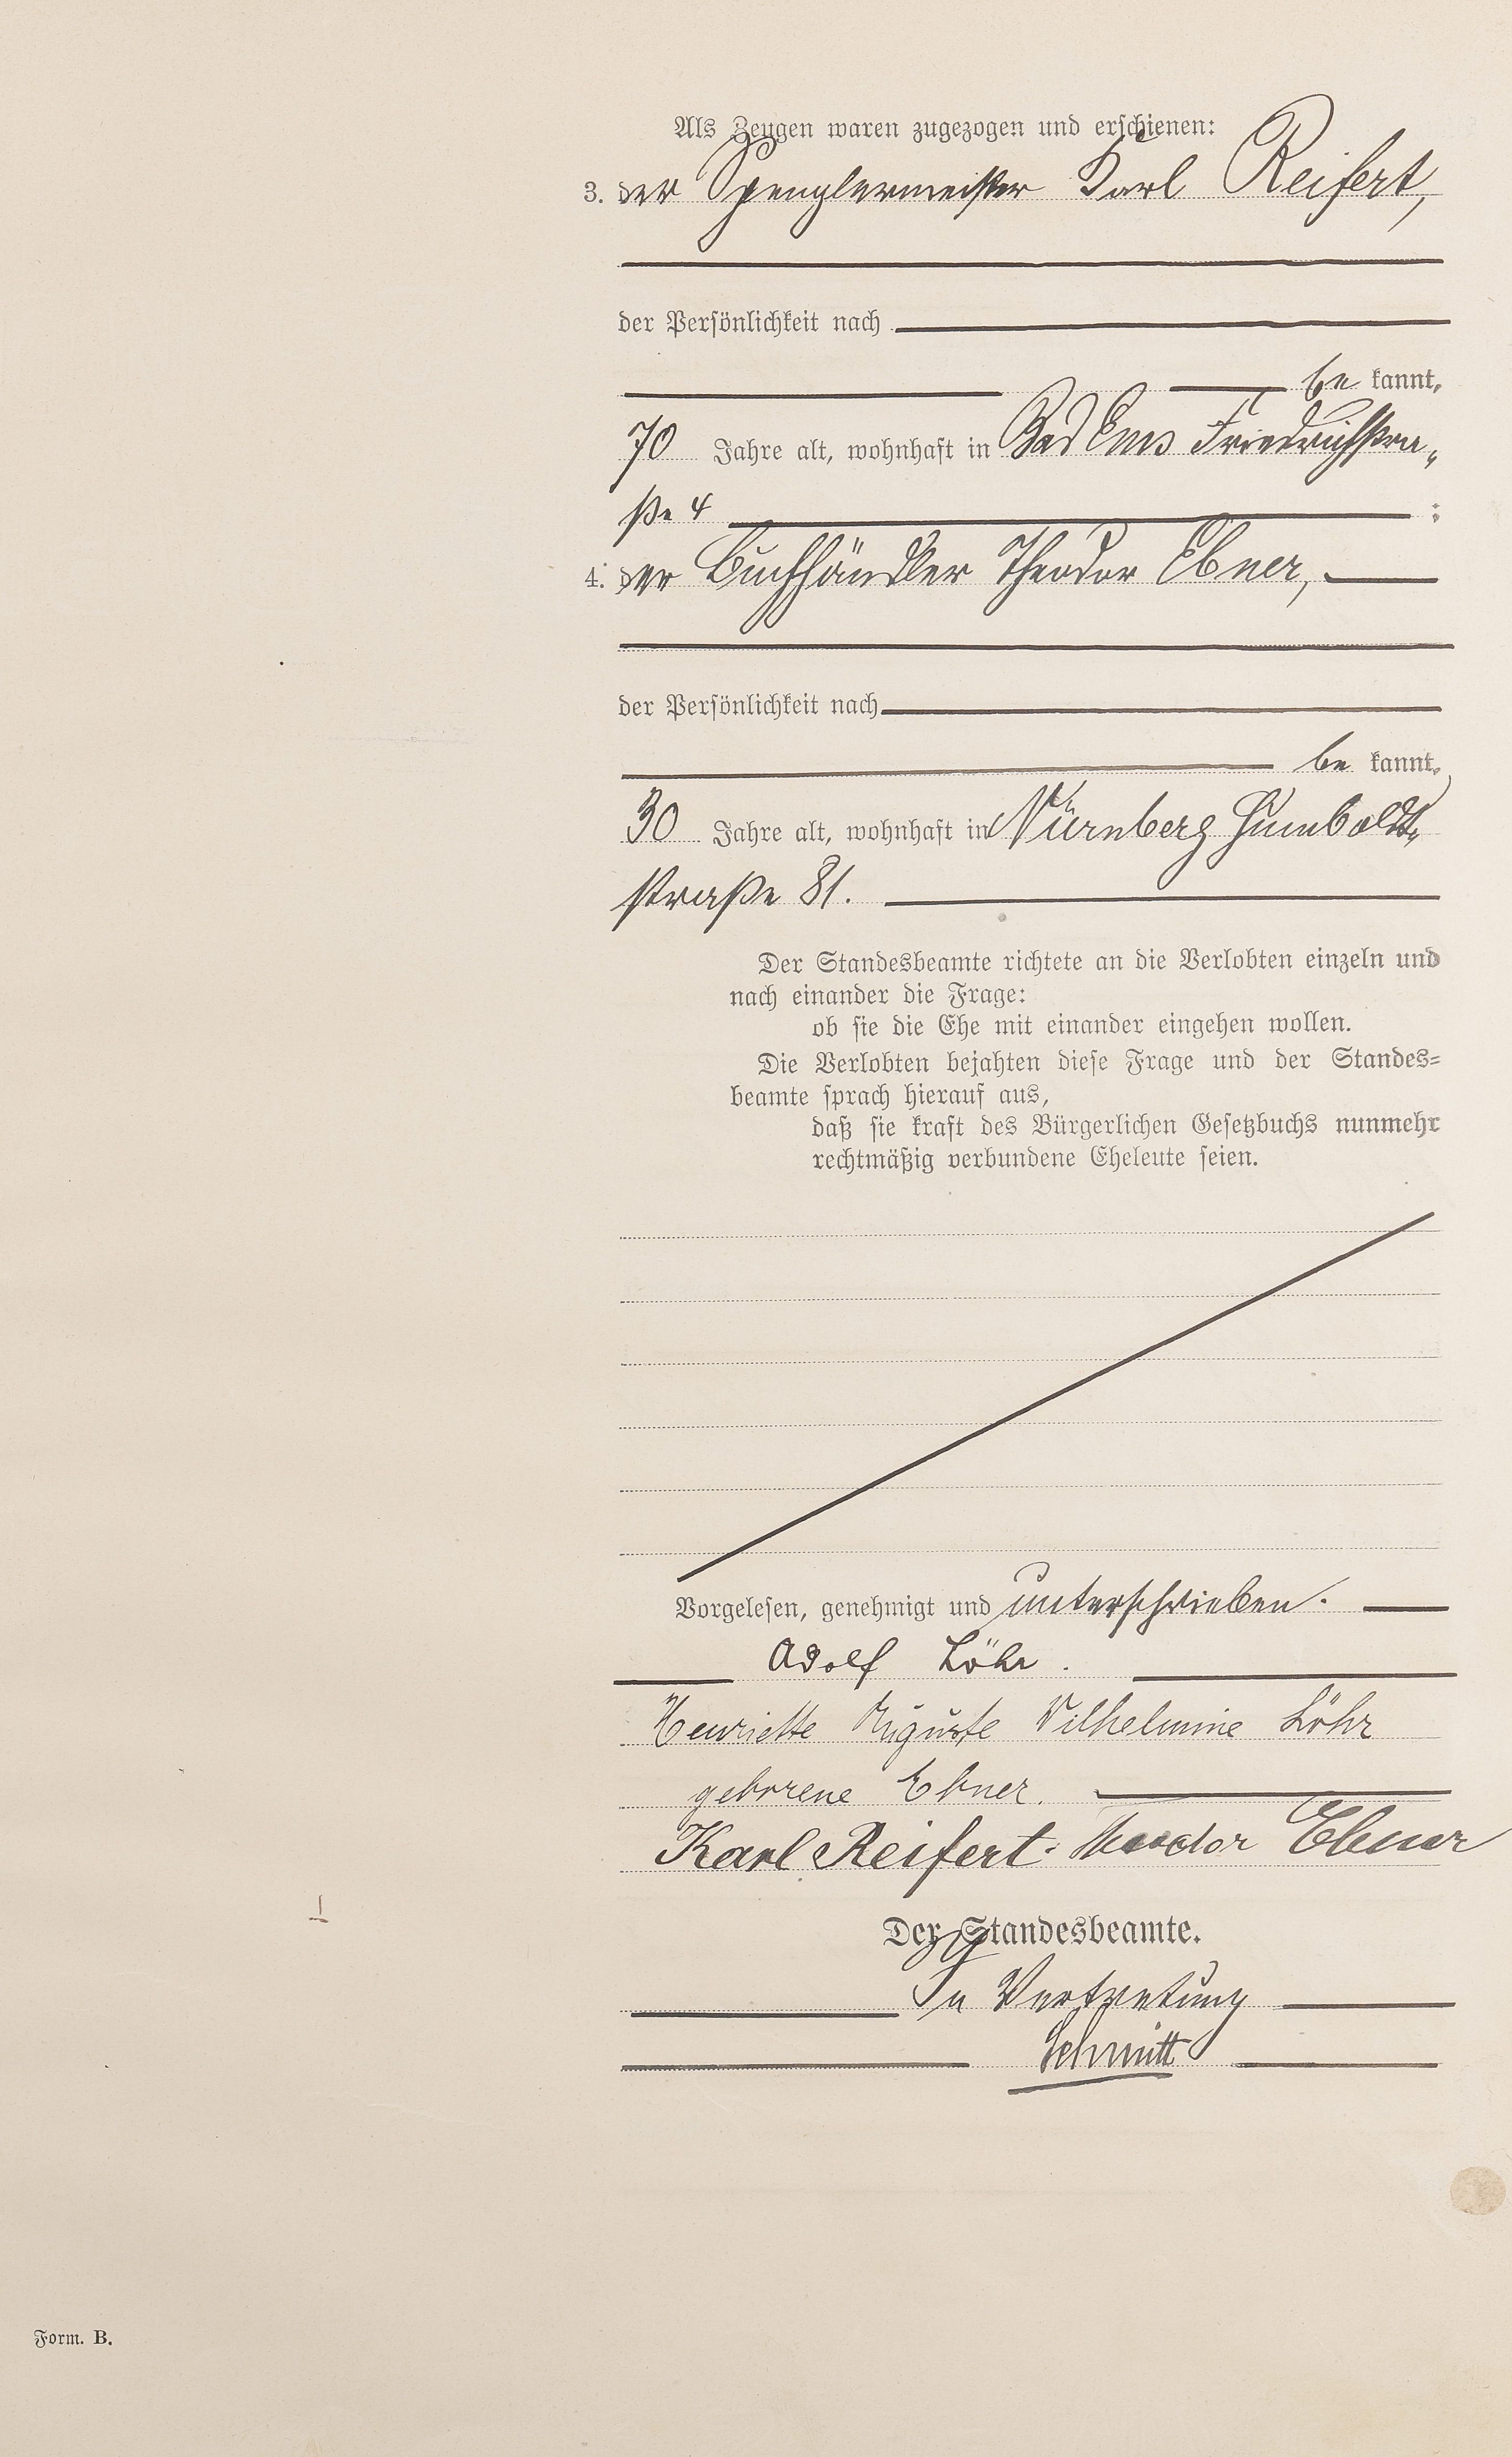 Als Zeugen waren zugezogen und erschienen:
3. der Spenglermeister Karl Reifert,
der Persönlichkeit nach
be kannt,
70 Jahre alt, wohnhaft in Bad Ems Friedrichstra„
ße 4 ;
4. der Buchhändler Theodor Ebner,
der Persönlichkeit nach
be kannt,
30 Jahre alt, wohnhaft in Nürnberg Humboldt„
straße 81.
Der Standesbeamte richtete an die Verlobten einzeln und
nach einander die Frage:
ob sie die Ehe mit einander eingehen wollen.
Die Verlobten bejahten diese Frage und der Standes=
beamte sprach hierauf aus,
daß sie kraft des Bürgerlichen Gesetzbuchs nunmehr
rechtmäßig verbundene Eheleute seien.
Vorgelesen, genehmigt und unterschrieben.
Adolf Löhr.
Henriette Auguste Wilhelmine Löhr
geborene Ebner.
Karl Reifert. Theodor Ebner
Der Standesbeamte.
In Vertretung
Schmitt
Form. B.